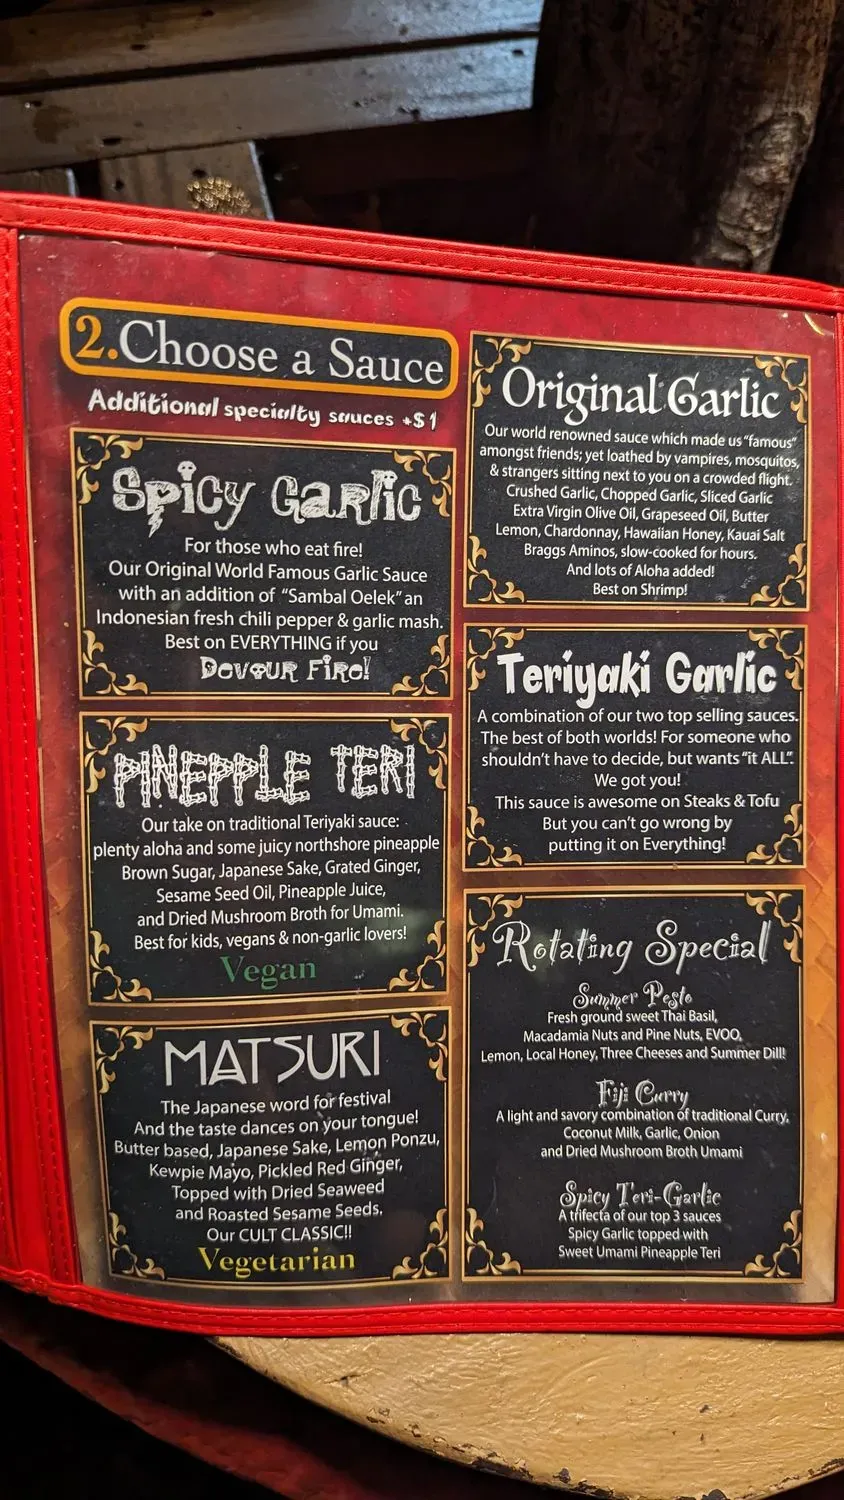 2.Choose a Sauce
Additional specialty sauces +$1
Spicy Garlic
For those who eat fire!
Our Original World Famous Garlic Sauce
with an addition of "Sambal Oelek" an
Indonesian fresh chili pepper & garlic mash.
Best on EVERYTHING if you
Devour Fire!
PINEPPLE TERI
Our take on traditional Teriyaki sauce:
plenty aloha and some juicy northshore pineapple
Brown Sugar, Japanese Sake, Grated Ginger,
Sesame Seed Oil, Pineapple Juice,
and Dried Mushroom Broth for Umami.
Best for kids, vegans & non-garlic lovers!
Vegan
MATSURI
The Japanese word for festival
And the taste dances on your tongue!
Butter based, Japanese Sake, Lemon Ponzu,
Kewpie Mayo, Pickled Red Ginger,
Topped with Dried Seaweed
and Roasted Sesame Seeds.
Our CULT CLASSIC!!
Vegetarian
Original Garlic
Our world renowned sauce which made us "famous"
amongst friends; yet loathed by vampires, mosquitos,
& strangers sitting next to you on a crowded flight.
Crushed Garlic, Chopped Garlic, Sliced Garlic
Extra Virgin Olive Oil, Grapeseed Oil, Butter
Lemon, Chardonnay, Hawaiian Honey, Kauai Salt
Braggs Aminos, slow-cooked for hours.
And lots of Aloha added!
Best on Shrimp!
Teriyaki Garlic
A combination of our two top selling sauces.
The best of both worlds! For someone who
shouldn't have to decide, but wants "it ALL".
We got you!
This sauce is awesome on Steaks & Tofu
But you can't go wrong by
putting it on Everything!
Rotating Special
Summer Pesto
Fresh ground sweet Thai Basil,
Macadamia Nuts and Pine Nuts, EVOO,
Lemon, Local Honey, Three Cheeses and Summer Dill!
Fiji Curry
A light and savory combination of traditional Curry,
Coconut Milk, Garlic, Onion
and Dried Mushroom Broth Umami
Spicy Teri-Garlic
A trifecta of our top 3 sauces
Spicy Garlic topped with
Sweet Umami Pineapple Teri